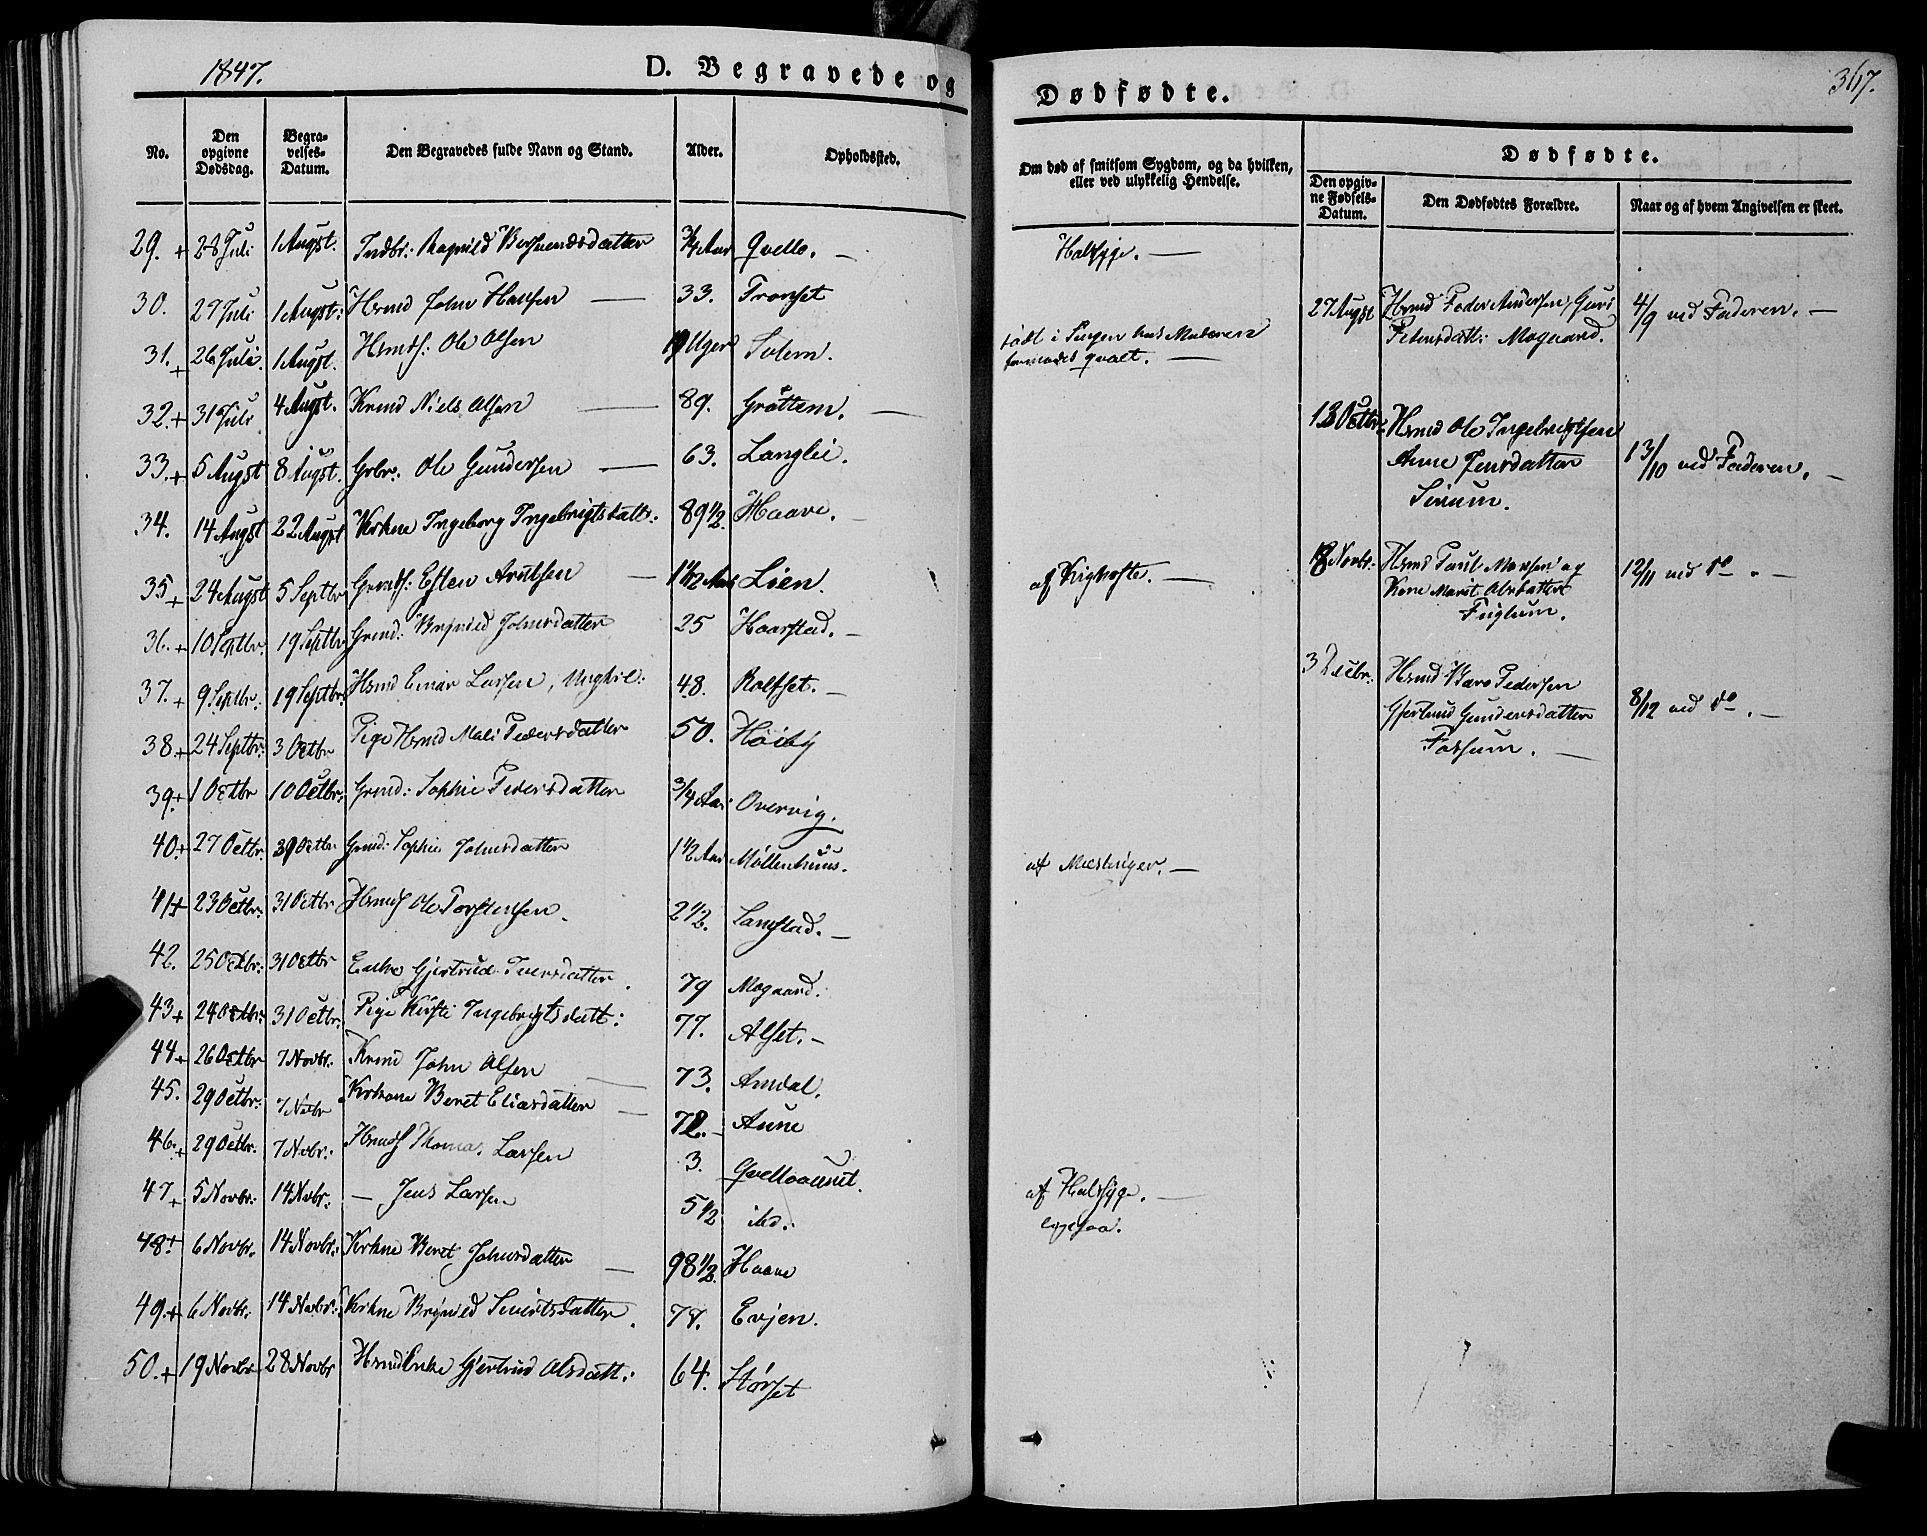 1847.
D. Begravede og
Dødfødte.
367.
No.
Den opgivne Dødsdag.
Begravelses-Datum.
Den Begravedes fulde Navn og Stand.
Alder.
Opholdssted.
Om død af smitsom Sygdom, og da hvilken, eller ved ulykkelig Hendelse.
Dødfødte.
Den opgivne Fødsels-Datum.
Den Dødfødtes Forældre.
Naar og af hvem Angivelsen er skeet.
29. + 28 Juli 1 Augst. Indbr: Ragnild 3/4 Aar Qvello. — Halssyge. —
30. 27 Juli 1 Augst: Hsmd John Hansen — 33. Tronset
31. + 26 Juli. 1 Augst. Hsmds: Ole Olsen 19 Uger Solem. født i Sengen hos Moderen
formodes qvalt. —
32. + 31 Juli 4 Augst. Krmd Niels Olsen — 89. Grøttem. —
33. + 5 Augst 8 Augst. Grbr: Ole Gundersen — 63. Langlei.
34. 14 Augst 22 Augst Krkne Ingeborg Ingebrigtsdatt: 89 1/2. Haave. —
35 + 24 Augst 5 Septbr Grmds: Esten Arntsen — 1 1/2 Aar Lien. af Kighoste. —
36. + 10 Septbr. 19 Septbr Grmd: Brynild Johnsdatter 25 Haarstad. —
37. + 9 Septbr: 19 Septbr: Hsmd Einar Larsen, Ungkrl: 48. Rolfset. —
38 + 24 Septbr: 3 Octbr Pige Hsmd Mali Pedersdatter 50. Høiby
39 + 1 Octbr 10 Octbr: Grmd: Sophie Pedersdatter 3/4 Aar Overvig.
40. + 27 Octbr. 31 Octbr. Grmd: Sophie Johnsdatter 1 1/2 Aar Møllenhuus. af Meslinger. —
41 + 23 Octbr: 31 Octbr Hsmds Ole Torstensen. 2 1/2. Langstad. —
42. 25 Octbr: 31 Octbr Enke Gjertrud Iversdatter. 79 Mogaard.
43 + 24 Octbr: 31 Octbr: Pige Kirsti Ingebrigtsdatt: 77. Alset. —
44 + 26 Octbr 7 Novbr: Krmd John Olsen — 73. Amdal.
45. 29 Octbr: 7 Novbr Krkone Beret Eliasdatter — 72. — Aune
46. + 29 Octbr. 7 Novbr: Hsmds Thomas Larsen 3. Qvelloaunet. af Halssyge. —
47 + 5 Novbr: 14 Novbr. — Jens Larsen 5 1/2 ibd. ligesaa.
48 + 6 Novbr. 14 Novbr: Krkne Beret Johnsdatter — 98 1/2. Haave
49. + 6 Novbr. 14 Novbr: Krkne Brynild Sivertsdatter. 78. Evjen.
50. + 19 Novbr 28 Novbr HsmdEnke Gjertrud Olsdatt: 64. Størset
27 Augst Hsmd Peder Andersen, Guri 4/9 ved Faderen. —
Pedersdatt: Mogaard.
13 Octbr: Hsmd Ole Ingebrigtsen 13/10 ved Faderen. —
Anne Jensdatter
18 Novbr. Hsmd Paul Monsen og 12/11 ved do. —
Kone Marit Olsdatter
Fuglum.
3 Decbr: Hsmd Baro Pedersen 8/12 ved do. —
Gjertrud Gundersdatter
Fossum. —